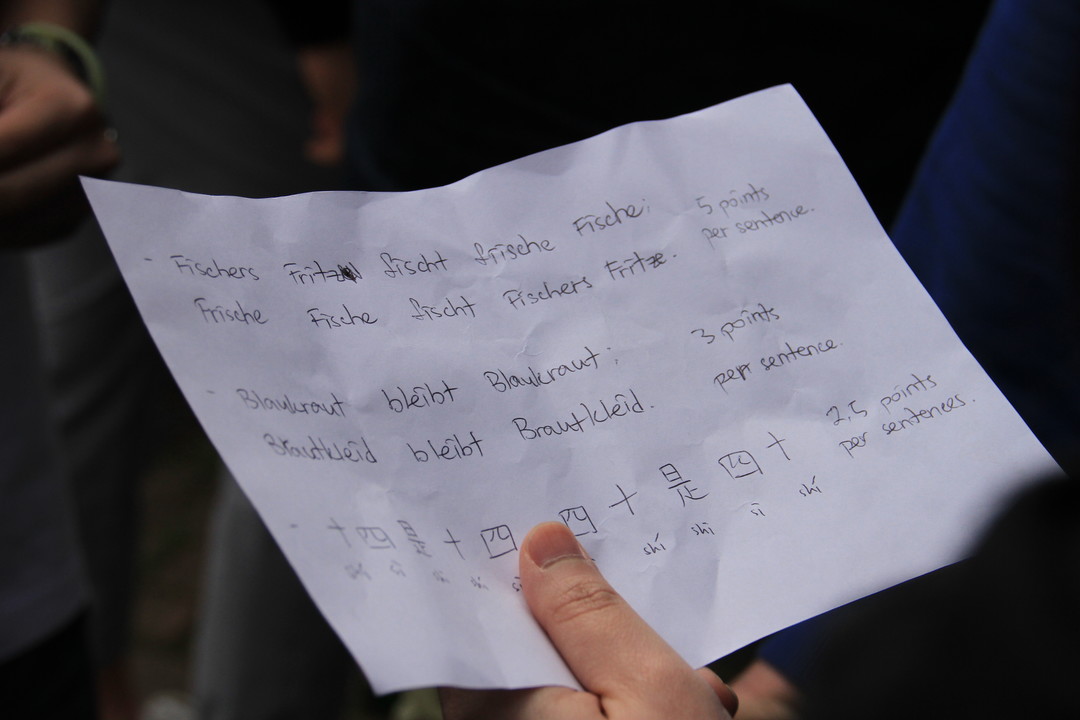 - Fischers Fritz fischt frische Fische; 5 points
per sentence.
Frische Fische fischt Fischers Fritze.
- Blaukraut bleibt Blaukraut; 3 points
pepr sentence.
Brautkleid bleibt Brautkleid.
- 十四是十四 四十是四十 2,5 points
per sentences.
shí shì sì shí